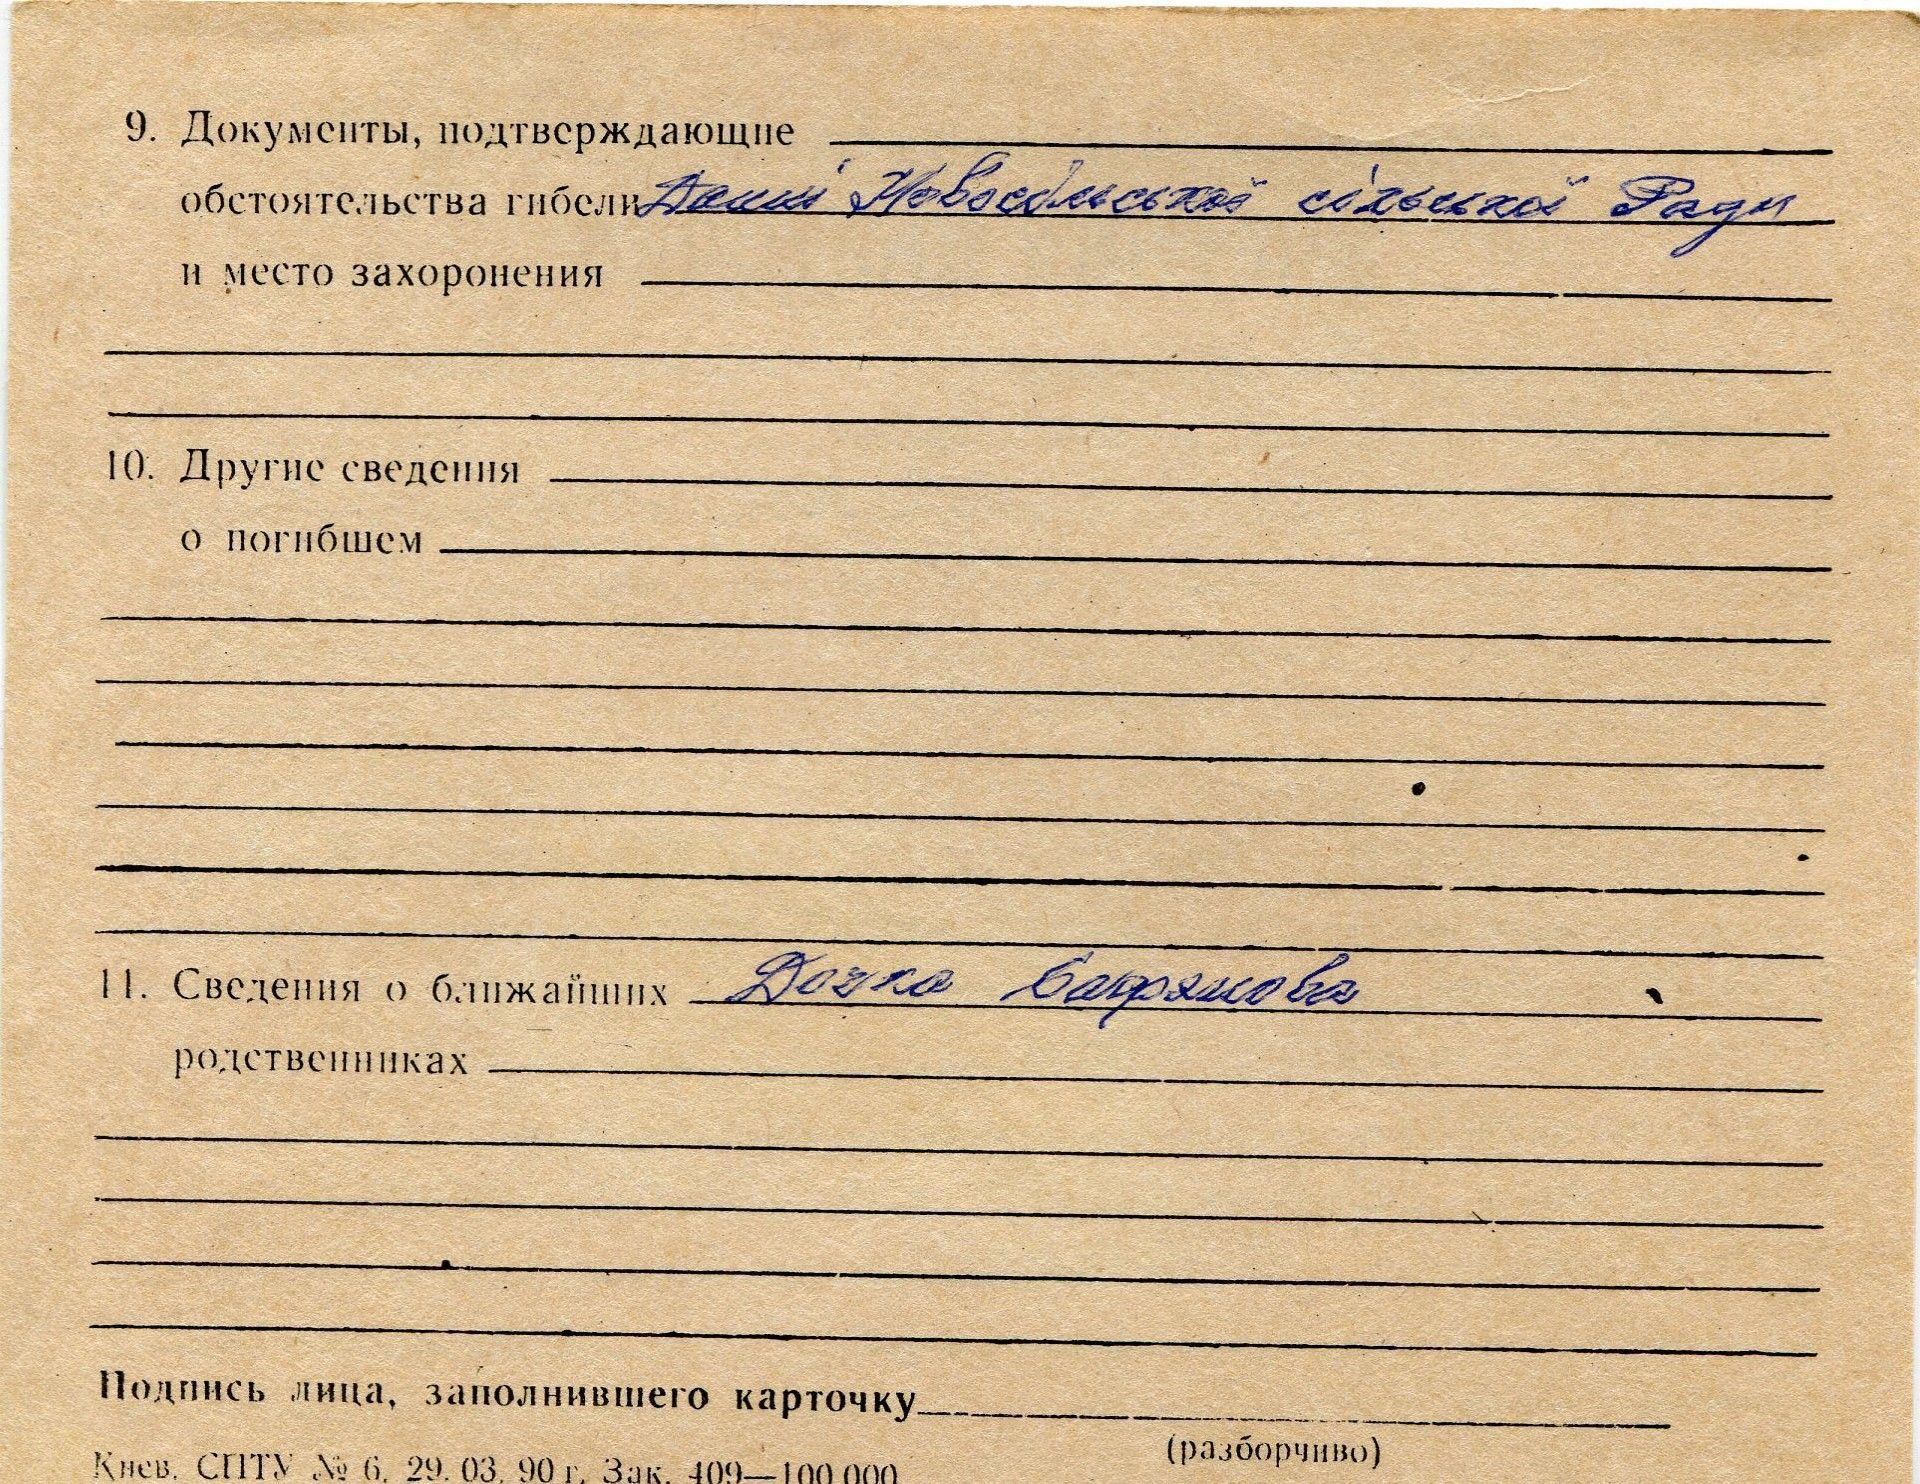 9. Документы, подтверждающие
обстоятельства гибели Данні Новосільської сільської Ради
и место захоронения
10. Другие сведения
о погибшем
11. Сведения о ближайших Дочка
родственниках
Подпись лица, заполнившего карточку
(разборчиво)
Киев. СПТУ № 6. 29. 03. 90 г. Зак. 409—100 000